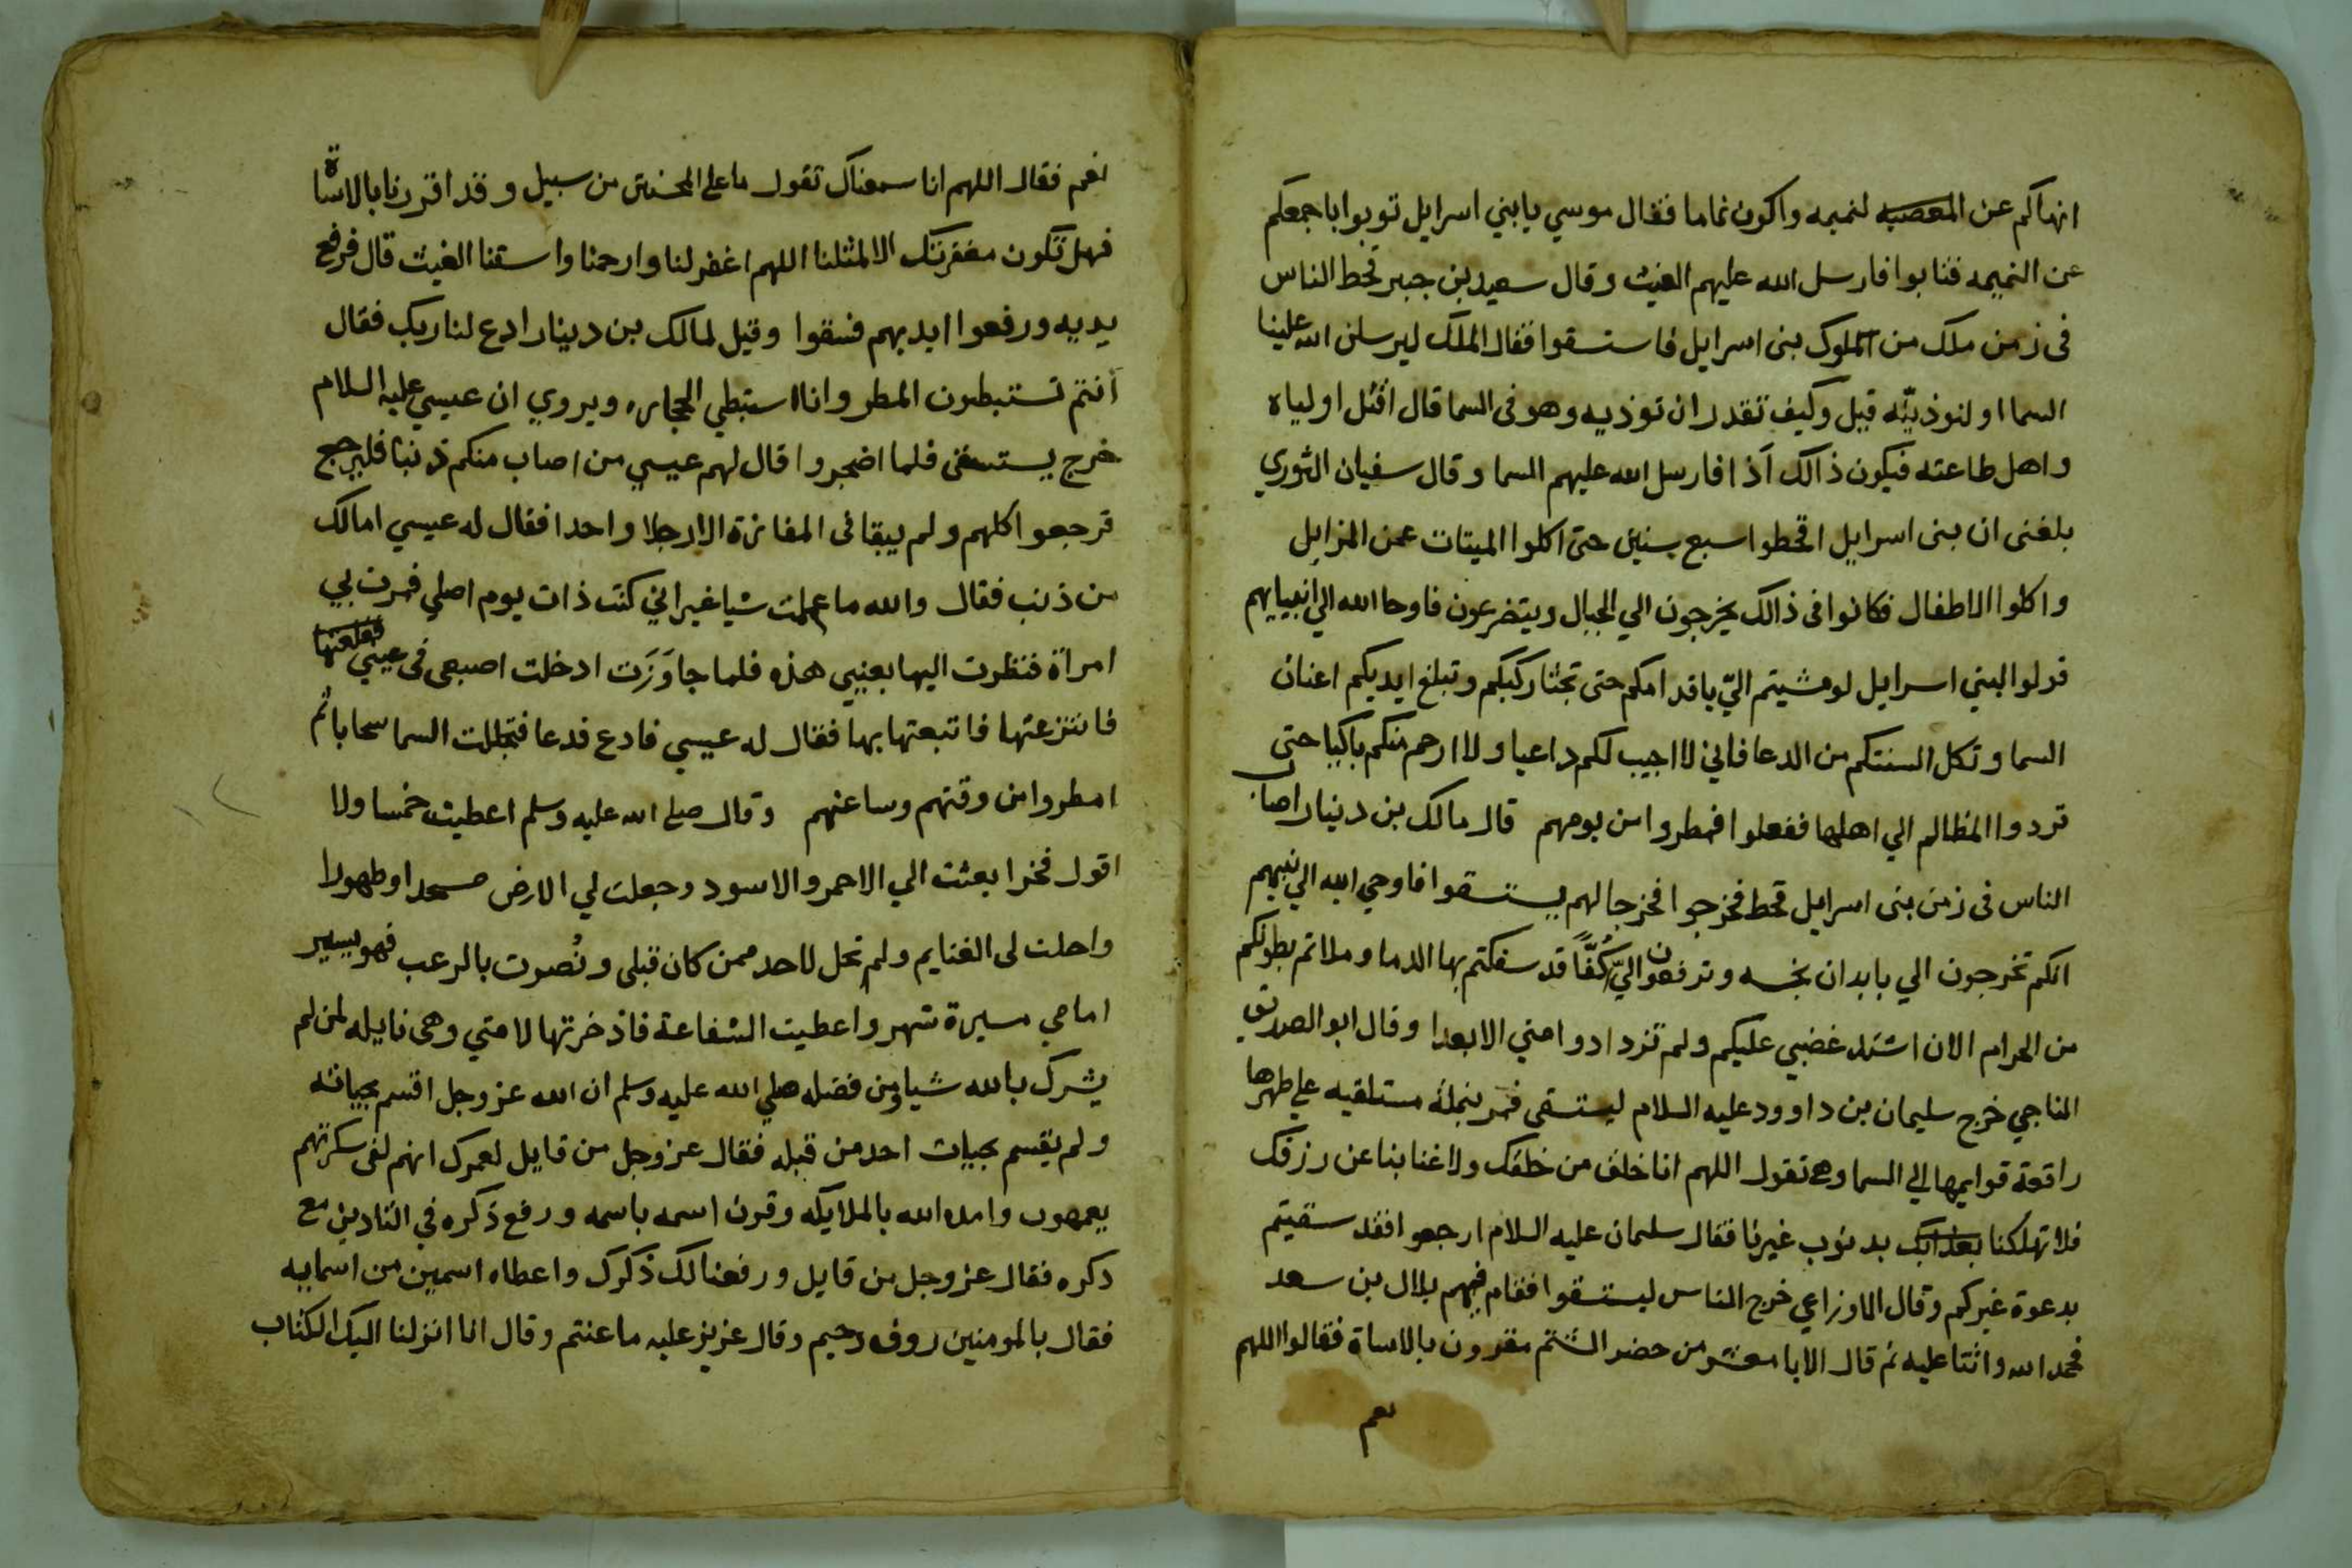 انهاكم عن المعصيه لنميمه واكون نماما فقال موسي يا بني اسرايل توبوا باجمعكم
عن النميمه فتابوا فارسل الله عليهم الغيث وقال سعيد بن جبير قحط الناس
فى زمن ملك من الملوك بنى اسرايل فاستسقوا فقال الملك ليرسلن الله علينا
السما او لنوذينه قيل وكيف تقدر ان توذيه وهو فى السما قال اقتل اولياه
واهل طاعته فيكون ذالك اذا فارسل الله عليهم السما وقال سفيان الثوري
بلغنى ان بنى اسرايل اقحطوا سبع سنين حتى اكلوا الميتات عن المزابل
واكلوا الاطفال فكانوا فى ذالك يخرجون الي الجبال ويتضرعون فاوحا الله الي انبيايهم
قولوا لبني اسرايل لو مشيتم اليّ باقدامكم حتى تجثا ركبكم وتبلغ ايديكم اعنان
السما وتكل السنتكم من الدعا فاني لا اجيب لكم داعيا ولا ارحم منكم باكيا حتى
تردوا المظالم الي اهلها ففعلوا فمطروا من يومهم قال مالك بن دينار اصاب
الناس فى زمن بنى اسرايل قحط فخرجوا فخرجا لهم يستسقوا فاوحي الله الي نبيهم
انكم تخرجون الي بابدان نجسه وترفعون اليّ كُفًّا قد سفكتم بها الدما وملاتم بطونكم
من الحرام الان اشتد غضبي عليكم ولم تزدادوا مني الا بعدا وقال ابو الصديق
الناجي خرج سليمان بن داوود عليه السلام ليستسقى فمر بنملة مستلقيه علي ظهرها
رافعة قوايمها الي السما وهى تقول اللهم انا خلق من خلقك ولا غنا بنا عن رزقك
فلا تهلكنا بعدابك بدنوب غيرنا فقال سليمان عليه السلام ارجعوا فقد سقيتم
بدعوة غيركم وقال الاوزاعي خرج الناس ليستسقوا فقام فيهم بلال بن سعد
فحمد الله واثنا عليه ثم قال الا يا معشر من حضر الستم مقرون بالاساة فقالوا اللهم
نعم
نعم فقال اللهم انا سمعناك تقول ما على المحسنين من سبيل وقد اقررنا بالاساة
فهل تكون مغفرتك الا لمثلنا اللهم اغفر لنا وارحمنا واسقنا الغيث قال فرفع
يديه ورفعوا ايديهم فسقوا وقيل لمالك بن دينار ادع لنا ربك فقال
أنتم تستبطون المطر وانا استبطي الحجاره ويروي ان عيسي عليه السلام
خرج يستسقى فلما اضجروا قال لهم عيسي من اصاب منكم ذنبا فليرجع
فرجعوا كلهم ولم يبقا فى المفازة الا رجلا واحدا فقال له عيسي امالك
من ذنب فقال والله ما عملت شيا غير اني كنت ذات يوم اصلي فمرت بي
امراة فنظرت اليها بعيني هذه فلما جاوَزَت ادخلت اصبعى فى عيني فقلعتها
فانتزعتها فاتبعتها بها فقال له عيسي فادع فدعا فتجللت السما سحابا ثم
امطروا من وقتهم وساعتهم وقال صلى الله عليه وسلم اعطيت خمسا ولا
اقول فخرا بعثت الي الاحمر والاسود وجعلت لي الارض مسجدا وطهورا
واحلت لى الغنايم ولم تحل لاحد ممن كان قبلى ونُصرت بالرعب فهو يسير
امامي مسيرة شهر واعطيت الشفاعة فاذخرتها لامتي وهى نايله لمن لم
يشرك بالله شيا ومن فضله صلي الله عليه وسلم ان الله عز وجل اقسم بحياته
ولم يقسم بحيات احد من قبله فقال عز وجل من قايل لعمرك انهم لفى سكرتهم
يعمهون وامده الله بالملايكه وقرن اسمه باسمه ورفع ذكره في التادين مع
دكره فقال عز وجل من قايل ورفعنا لك ذكرك واعطاه اسمين من اسمايه
فقال بالمومنين روف رحيم وقال عزيز عليه ما عنتم وقال انا انزلنا اليك الكتاب